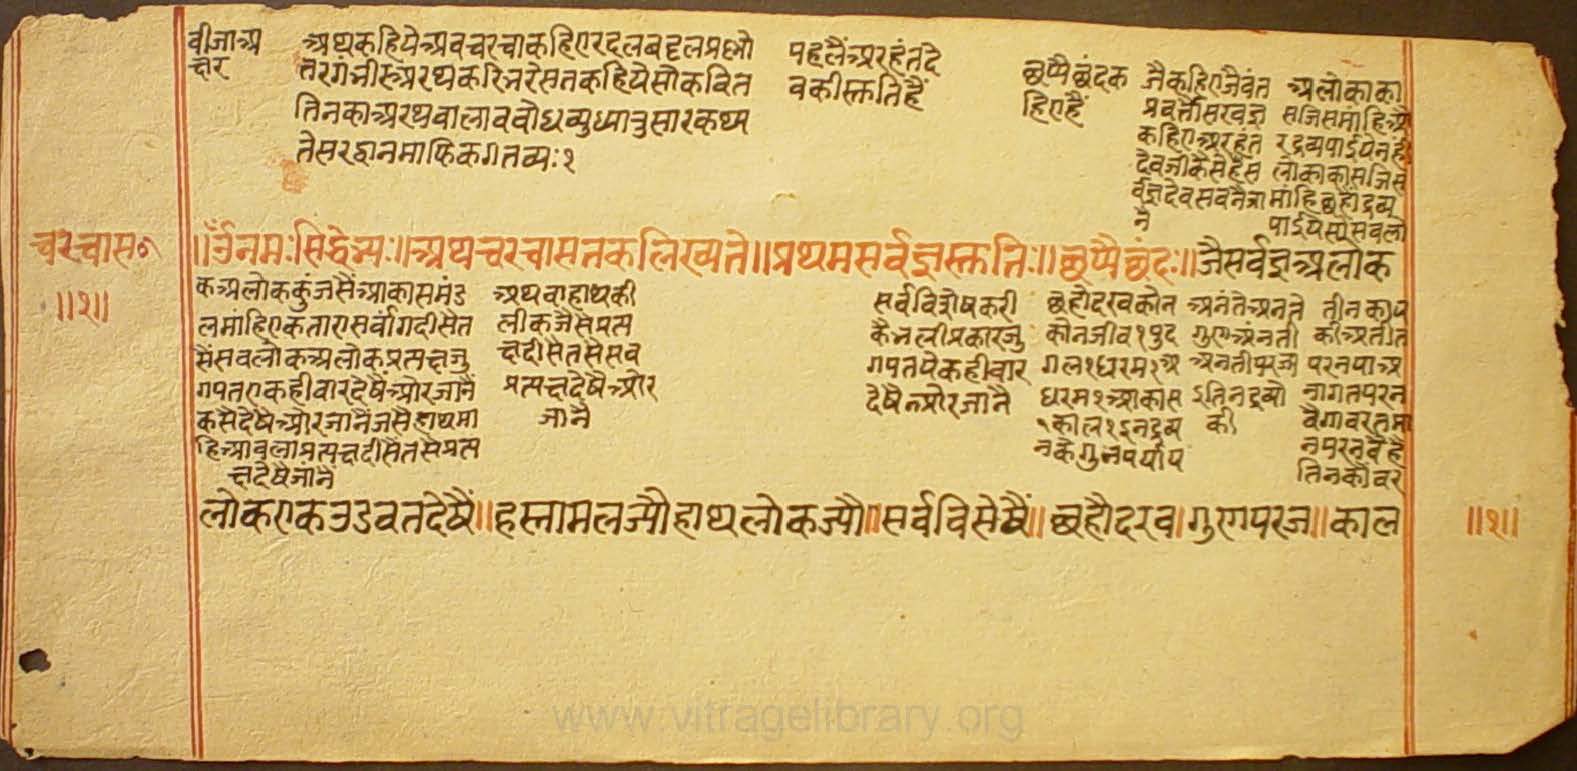 वीजाच्अ
क्षर
अथकहियेअवचरचाकहिएरदलबदलप्रश्नो
तरगंभीरूअरथकरिभरेसतकहियेसौकवित
तिनकाअरथवालाववोधवुध्यानुसारकथ्य
तेसरद्वानमाफिकगतव्यः१
पहलैंअरहंतदे
वकीस्तुतिहैं
छप्पैछंदक
हिएहैं
जैकहिएजैवंत
प्रवर्तौसरवज्ञ
कहिएअरहंत
देवजीकैसेहैंस
र्वज्ञदेवसवनैत्रा
नै
अलोकाका
सजिसमाहिऔ
रद्रव्यपाईयेनही
लोकाकासजिस
मांहिछहौंद्रव्य
पाईयेसोसवलो
चरचास०
॥१॥
॥ॐनमःसिद्धेभ्यः॥अथचरचासतकलिख्यते॥प्रथमसर्वज्ञस्तुतिः॥छप्पैछंदः॥जैसर्वज्ञअलोक
कअलोककुंजसैंआकासमंड
लमांहिएकतारासर्वांगदीसैत
सैंसवलोकअलोकप्रत्यक्षजु
गपतएकहीवारदेषैऔरजानै
कसैदेषैऔरजानैंजसैंहाथमा
हिआवलाप्रत्यक्षदीसैतसैप्रत्य
क्षदेषैजानैं
अथवाहाथकी
लीकजैसैंप्रत्य
क्षदीसैतसैसव
प्रत्यक्षदेषैऔर
जानै
सर्वविशेषकरी
कैभलीप्रकारजु
गपतयेकहीवार
देषैऔरजानै
छहोदरवकोन
कौनजीव१पुद
गल१धरम१अ
धरम१आकास
१काल१इनद्रव्य
नकेगुनपर्याय
अनंतेअनंते
गुणअनंती
अनंतीपरजा
इतिनद्रव्यौ
की
तीनकाप
कीअतीत
परनयाअ
नागतपरन
वैगावरतमा
नपरनवैहै
तिनकौंवर
लोकएकउडवतदेषैं॥हस्तामलज्यौहाथलोकज्यौ॥सर्वविसेषैं॥छहौदरव।गुणपरज॥काल
॥१॥
www.vitragelibrary.org